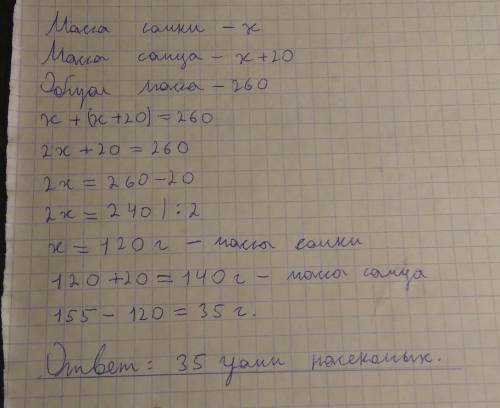 Масса самки – x
Масса самца – x+20
Общая масса – 260
x + (x+20) = 260
2x + 20 = 260
2x = 260 – 20
2x = 240 | : 2
x = 120 г – массы самки
120 + 20 = 140 г – масса самца
155 – 120 = 35 г.
Ответ: 35 насекомых.